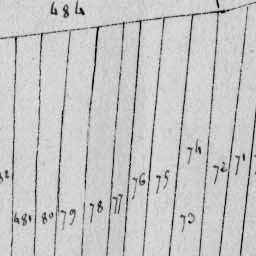 484
481
80
79
78
77
76
75
74
73
72
71